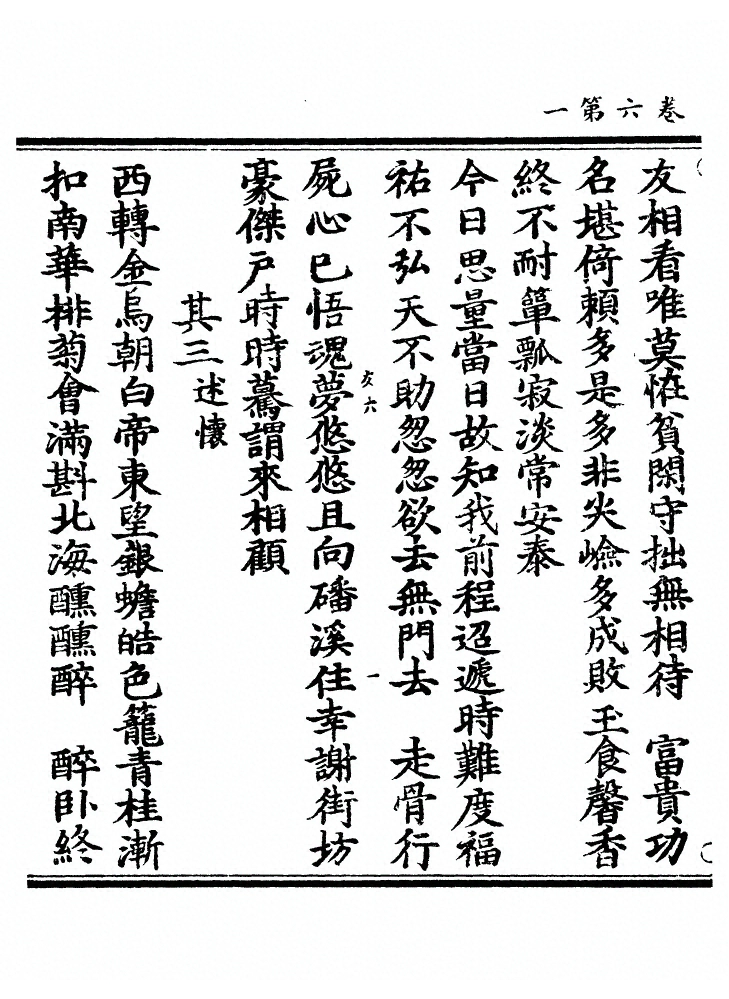 卷六第一
友相看唯莫恠貧閑守拙無相待　富貴功
名堪倚賴多是多非尖嶮多成敗玉食馨香
終不耐簞瓢寂淡常安泰
今日思量當日故知我前程迢遞時難度福
祐不弘天不助忽忽欲去無門去　走骨行
屍心已悟魂夢悠悠且向磻溪住幸謝街坊
友六
一
豪傑戶時時驀謂來相顧
其三述懷
西轉金烏朝白帝東望銀蟾皓色籠青桂漸
扣南華排菊會滿斟北海醺醺醉　醉臥終